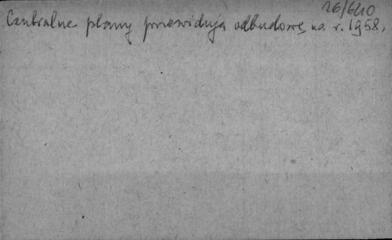 26/640
Centralne plany przewidują odbudowę na r. 1958.